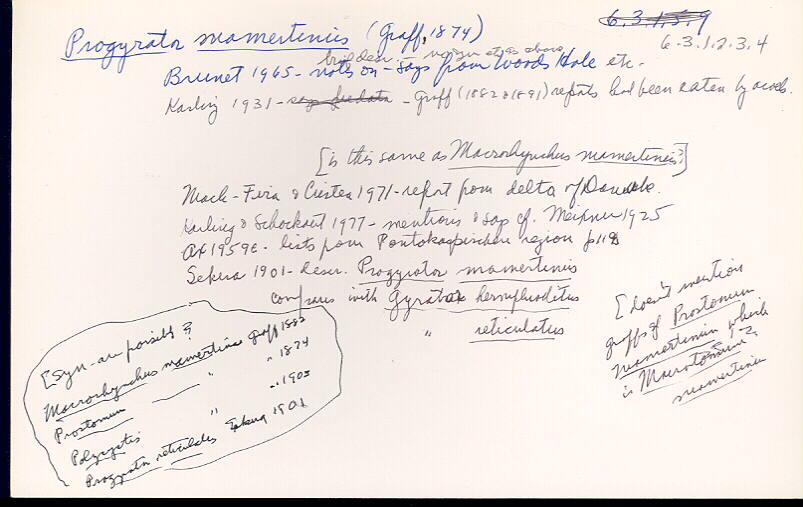 Progyrator mamertinus (Graff, 1874)
6.3.1.5.9
6.3.1.2.3.4
brief descr.
Brunet 1965 - notes on - says from Woods Hole etc.
Karling 1931 - - Graff (1882 & 1891) reports had been eaten by acoels.
[is this same as Macrorhynchus mamertinus?]
Mack-Fira & Cristea 1971 - report from delta of Danube.
Karling & Schockaert 1977 - mentions & says cf. Meixner 1925
Ax 1959 - lists from Pontokaspischen region p 118
Sekera 1901 - descr. Progyrator mamertinus
compares with Gyrator hermaphroditus
" reticulatus
[Syn - are possibly?
Macrorhynchus mamertinus Graff 1882
Prostomum " " 1874
Polycystis " " 1903
Progyrator reticulatus Sekera 1901
[doesn't mention
Graff's of Prostomum
mamertinum which
is Macrostomum?
mamertinum